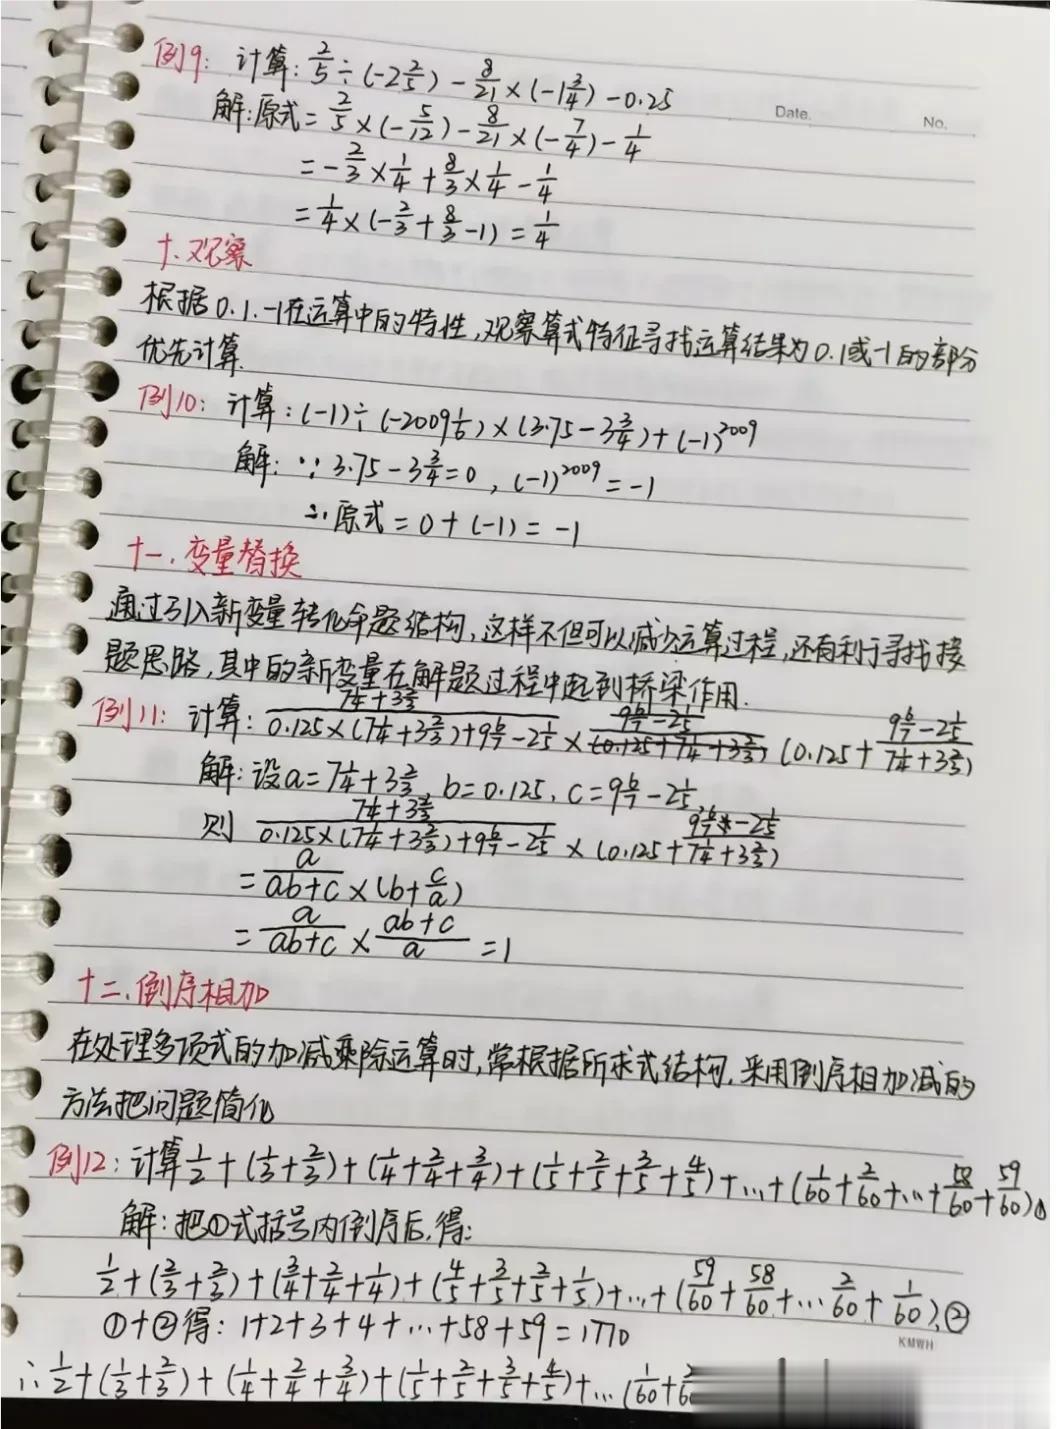 例9: 计算: 2/5÷(-2 2/5)-8/21×(-1 3/4)-0.25
Date.
No.
解:原式=2/5×(-5/12)-8/21×(-7/4)-1/4
=-2/3×1/4+8/3×1/4-1/4
=1/4×(-2/3+8/3-1)=1/4
十.观察
根据0.1.-1在运算中的特性,观察算式特征寻找运算结果为0.1或-1的部分
优先计算.
例10: 计算:(-1)÷(-2009 1/6)×(3.75-3 3/4)+(-1)^2009
解: ∵3.75-3 3/4=0, (-1)^2009=-1
∴原式=0+(-1)=-1
十一.变量替换
通过引入新变量转化命题结构,这样不但可以减少运算过程,还有利于寻找接
题思路,其中的新变量在解题过程中起到桥梁作用.
例11: 计算: (7 1/4+3 2/3)/(0.125×(7 1/4+3 2/3)+9 6/7-2 1/5)×(0.125+(9 6/7-2 1/5)/(7 1/4+3 2/3))
解:设a=7 1/4+3 2/3, b=0.125, c=9 6/7-2 1/5,
则 (7 1/4+3 2/3)/(0.125×(7 1/4+3 2/3)+9 6/7-2 1/5)×(0.125+(9 6/7-2 1/5)/(7 1/4+3 2/3))
=a/(ab+c)×(b+c/a)
=a/(ab+c)×(ab+c)/a=1
十二.倒序相加
在处理多项式的加减乘除运算时,常根据所求式结构,采用倒序相加减的
方法把问题简化
例12:计算1/2+(1/3+2/3)+(1/4+2/4+3/4)+(1/5+2/5+3/5+4/5)+...+(1/60+2/60+...+58/60+59/60)①
解:把①式括号内倒序后,得:
1/2+(2/3+2/3)+(3/4+2/4+1/4)+(4/5+3/5+2/5+1/5)+...+(59/60+58/60+...2/60+1/60),②
①+②得: 1+2+3+4+...+58+59=1770
KMWH
∴1/2+(1/3+2/3)+(1/4+2/4+3/4)+(1/5+2/5+3/5+4/5)+...(1/60+2/60